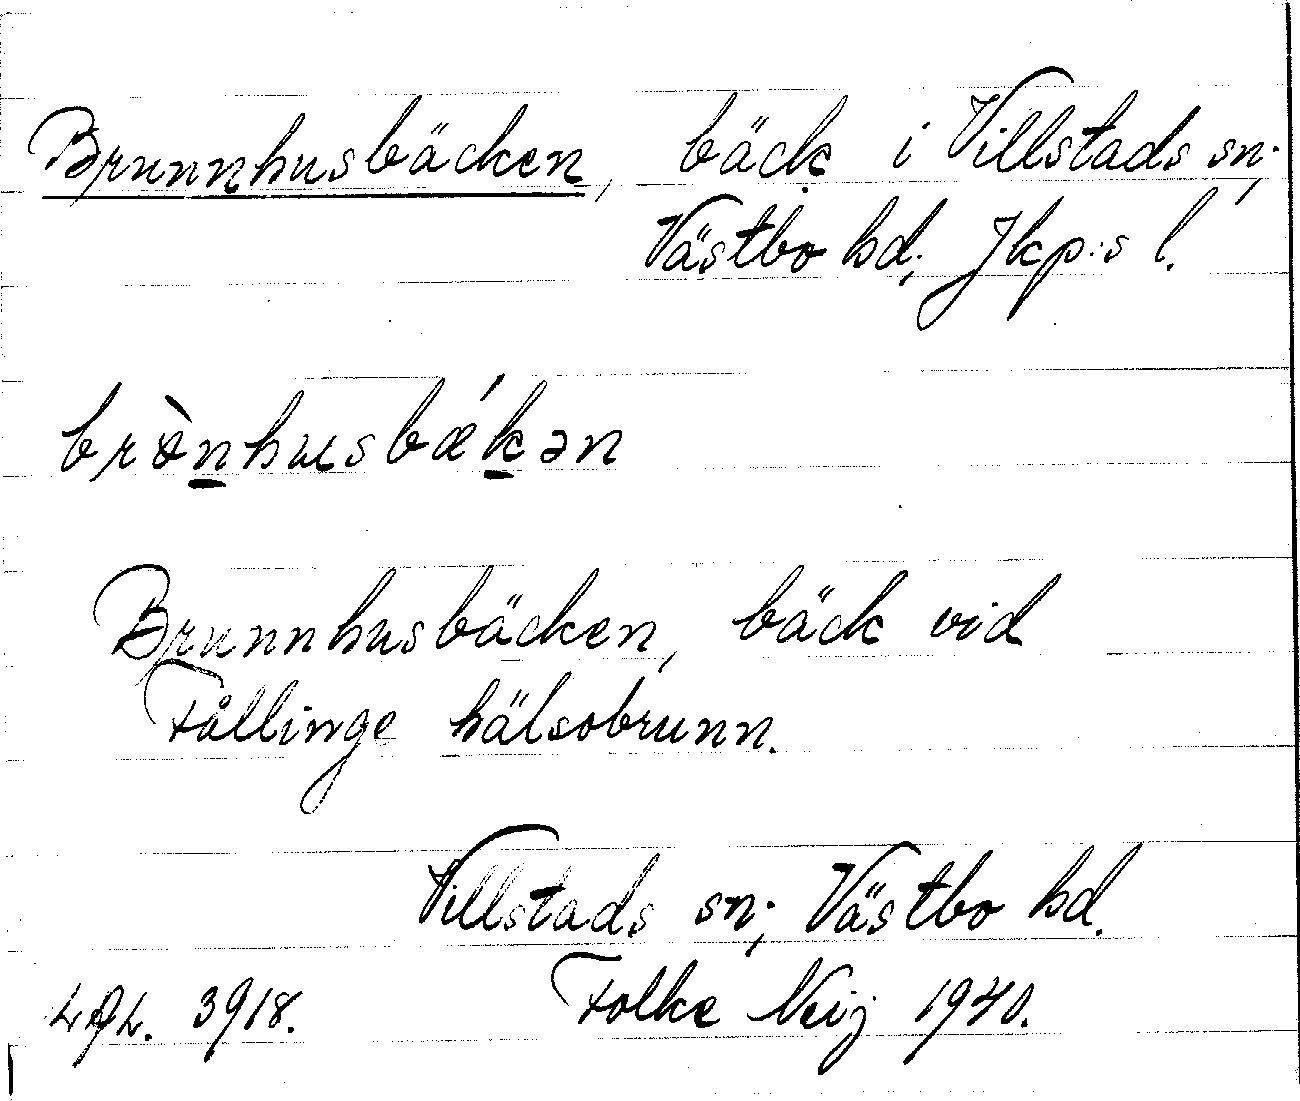 Brunnhusbäcken, bäck i Villstads sn;
Västbo hd; Jkp:s l.
brѳ̀nhusbǽkən
Brunnhusbäcken, bäck vid
Fållinge hälsobrunn.
Villstads sn; Västbo hd.
3918. Folke Neij 1940.